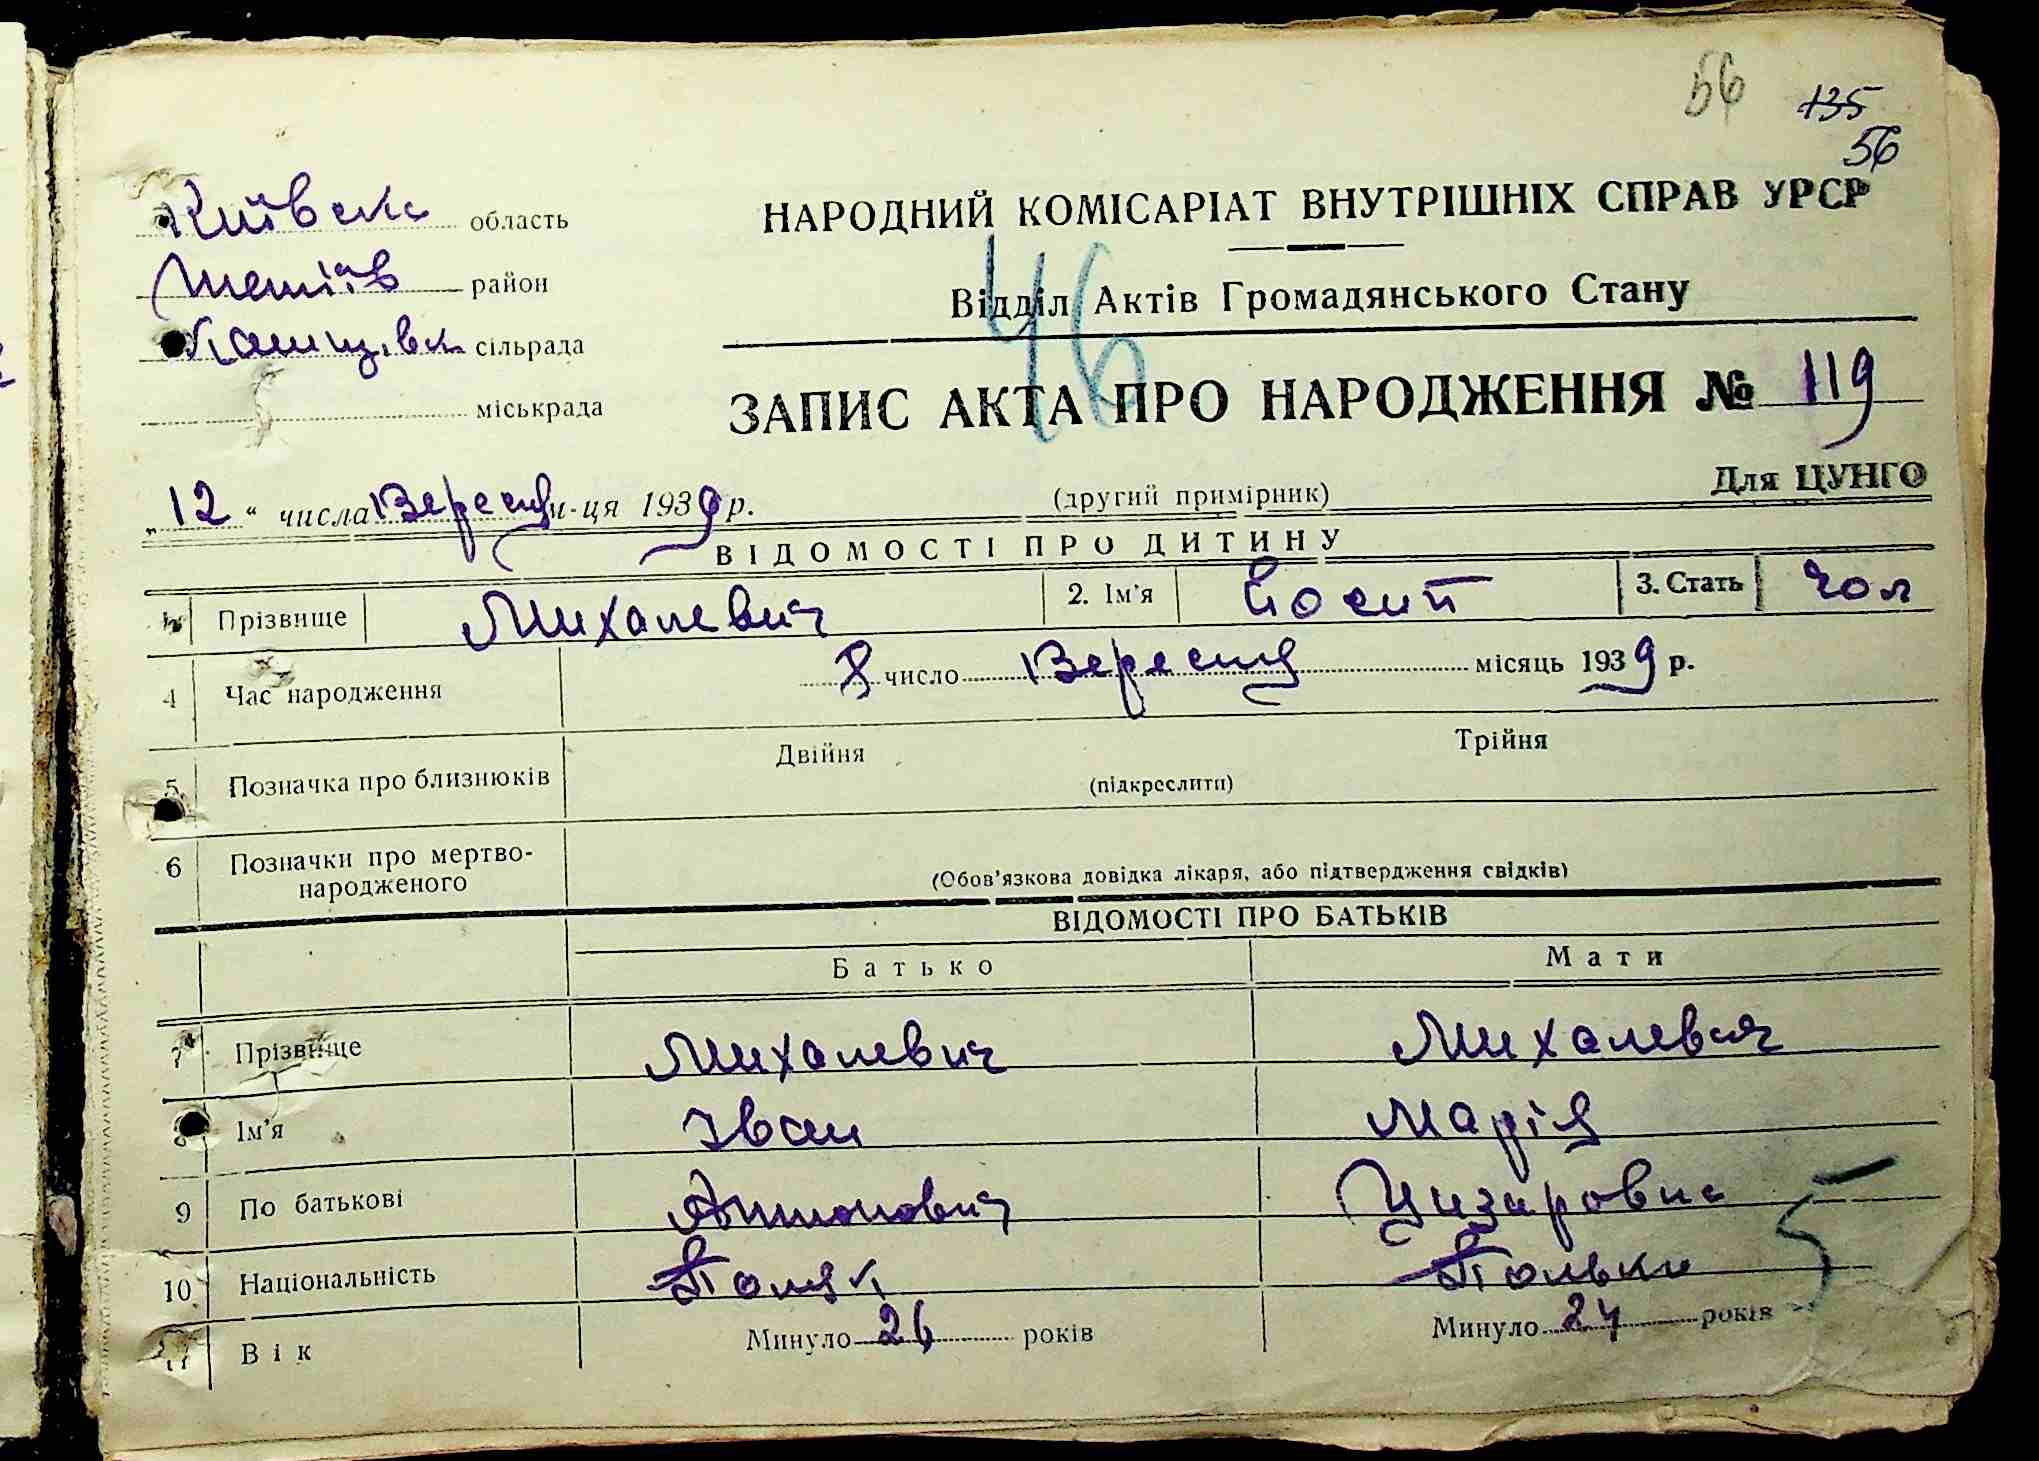 56
135
56
Київська область
Тетіїв район
Кашперівськ сільрада
міськрада
НАРОДНИЙ КОМІСАРІАТ ВНУТРІШНІХ СПРАВ УРСР
Відділ Актів Громадянського Стану
46
ЗАПИС АКТА ПРО НАРОДЖЕННЯ № 119
„12“ числа Вересня м-ця 1939 р.
(другий примірник)
Для ЦУНГО
ВІДОМОСТІ ПРО ДИТИНУ
1. Прізвище Михалевич 2. Ім'я Йосип 3. Стать чол
4 Час народження 8 число Вересня місяць 1939 р.
5. Позначка про близнюків Двійня Трійня
(підкреслити)
6 Позначки про мертво-
народженого (Обов'язкова довідка лікаря, або підтвердження свідків)
ВІДОМОСТІ ПРО БАТЬКІВ
Батько Мати
7 Прізвище Михалевич Михалевич
8 Ім'я Іван Марія
9 По батькові Антонович Цизаровна
10 Національність Поляк Полька
11 Вік Минуло 26 років Минуло 24 років